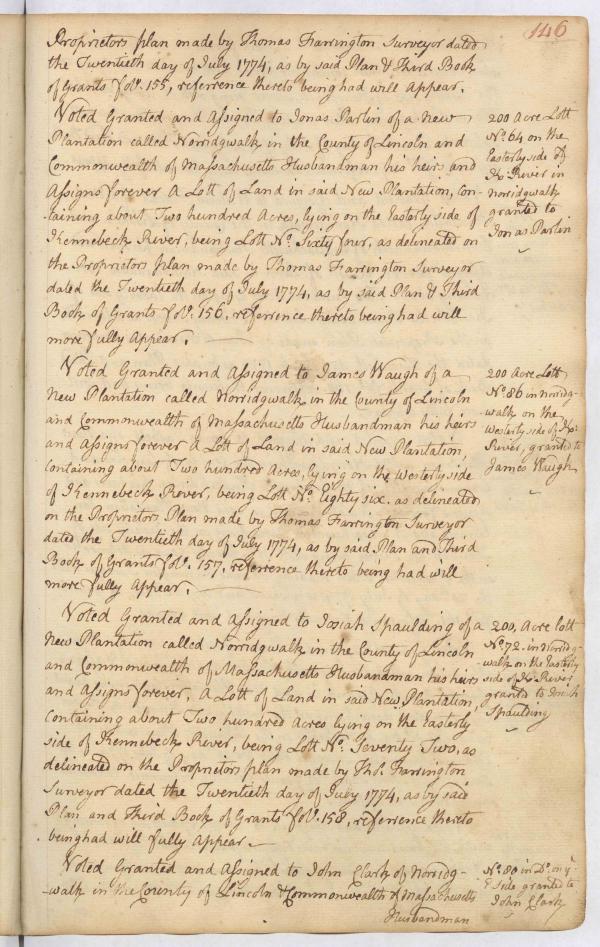 146
Proprietors plan made by Thomas Farrington Surveyor dated
the Twentieth day of July 1774, as by said Plan & Third Book
of Grants folo. 155, referrence thereto being had will Appear.
Voted Granted and Assigned to Jonas Parlin of a New
Plantation called Norridgwalk in the County of Lincoln and
Commonwealth of Massachusetts Husbandman his heirs and
Assigns forever A Lott of Land in said New Plantation, Con-
taining about Two hundred Acres, lying on the Easterly side of
Kennebeck River, being Lott No. Sixty four, as delineated on
the Proprietors plan made by Thomas Farrington Surveyor
dated the Twentieth day of July 1774, as by said Plan & Third
Book of Grants folo. 156, referrence thereto being had will
more fully Appear.
200 Acre Lott
No. 64 on the
Easterly side of
Ke. River in
norridgwalk
granted to
Jonas Parlin
Voted Granted and Assigned to James Waugh of a
New Plantation called Norridgwalk in the County of Lincoln
and Commonwealth of Massachusetts Husbandman his heirs
and Assigns forever A Lott of Land in said New Plantation,
Containing about Two hundred Acres, lying on the Westerly side
of Kennebeck River, being Lott No. Eighty six. as delineated
on the Proprietors Plan made by Thomas Farrington Surveyor
dated the Twentieth day of July 1774, as by said Plan and Third
Book of Grants folo. 157, referrence thereto being had will
more fully Appear.
200 Acre Lott
No. 86 in norridg-
walk on the
Westerly side of Ke.
River, granted to
James Waugh
Voted Granted and Assigned to Josiah Spaulding of a
New Plantation called Norridgwalk in the County of Lincoln
and Commonwealth of Massachusetts Husbandman his heirs
and Assigns forever, A Lott of Land in said New Plantation,
Containing about Two hundred Acres lying on the Easterly
side of Kennebeck River, being Lott No. Seventy Two, as
delineated on the Proprietors plan made by Tho. Farrington
Surveyor dated the Twentieth day of July 1774, as by said
Plan and Third Book of Grants folo. 158, referrence thereto
being had will fully Appear.
200, Acre lott
No. 72. in Norridg-
walk on the Easterly
side of Ke. River
granted to Josiah
Spaulding
Voted Granted and Assigned to John Clark of Norridg-
-walk in the County of Lincoln & Commonwealth of Massachusetts
Husbandman
No. 80 in Do. on ye
E side granted to
John Clark